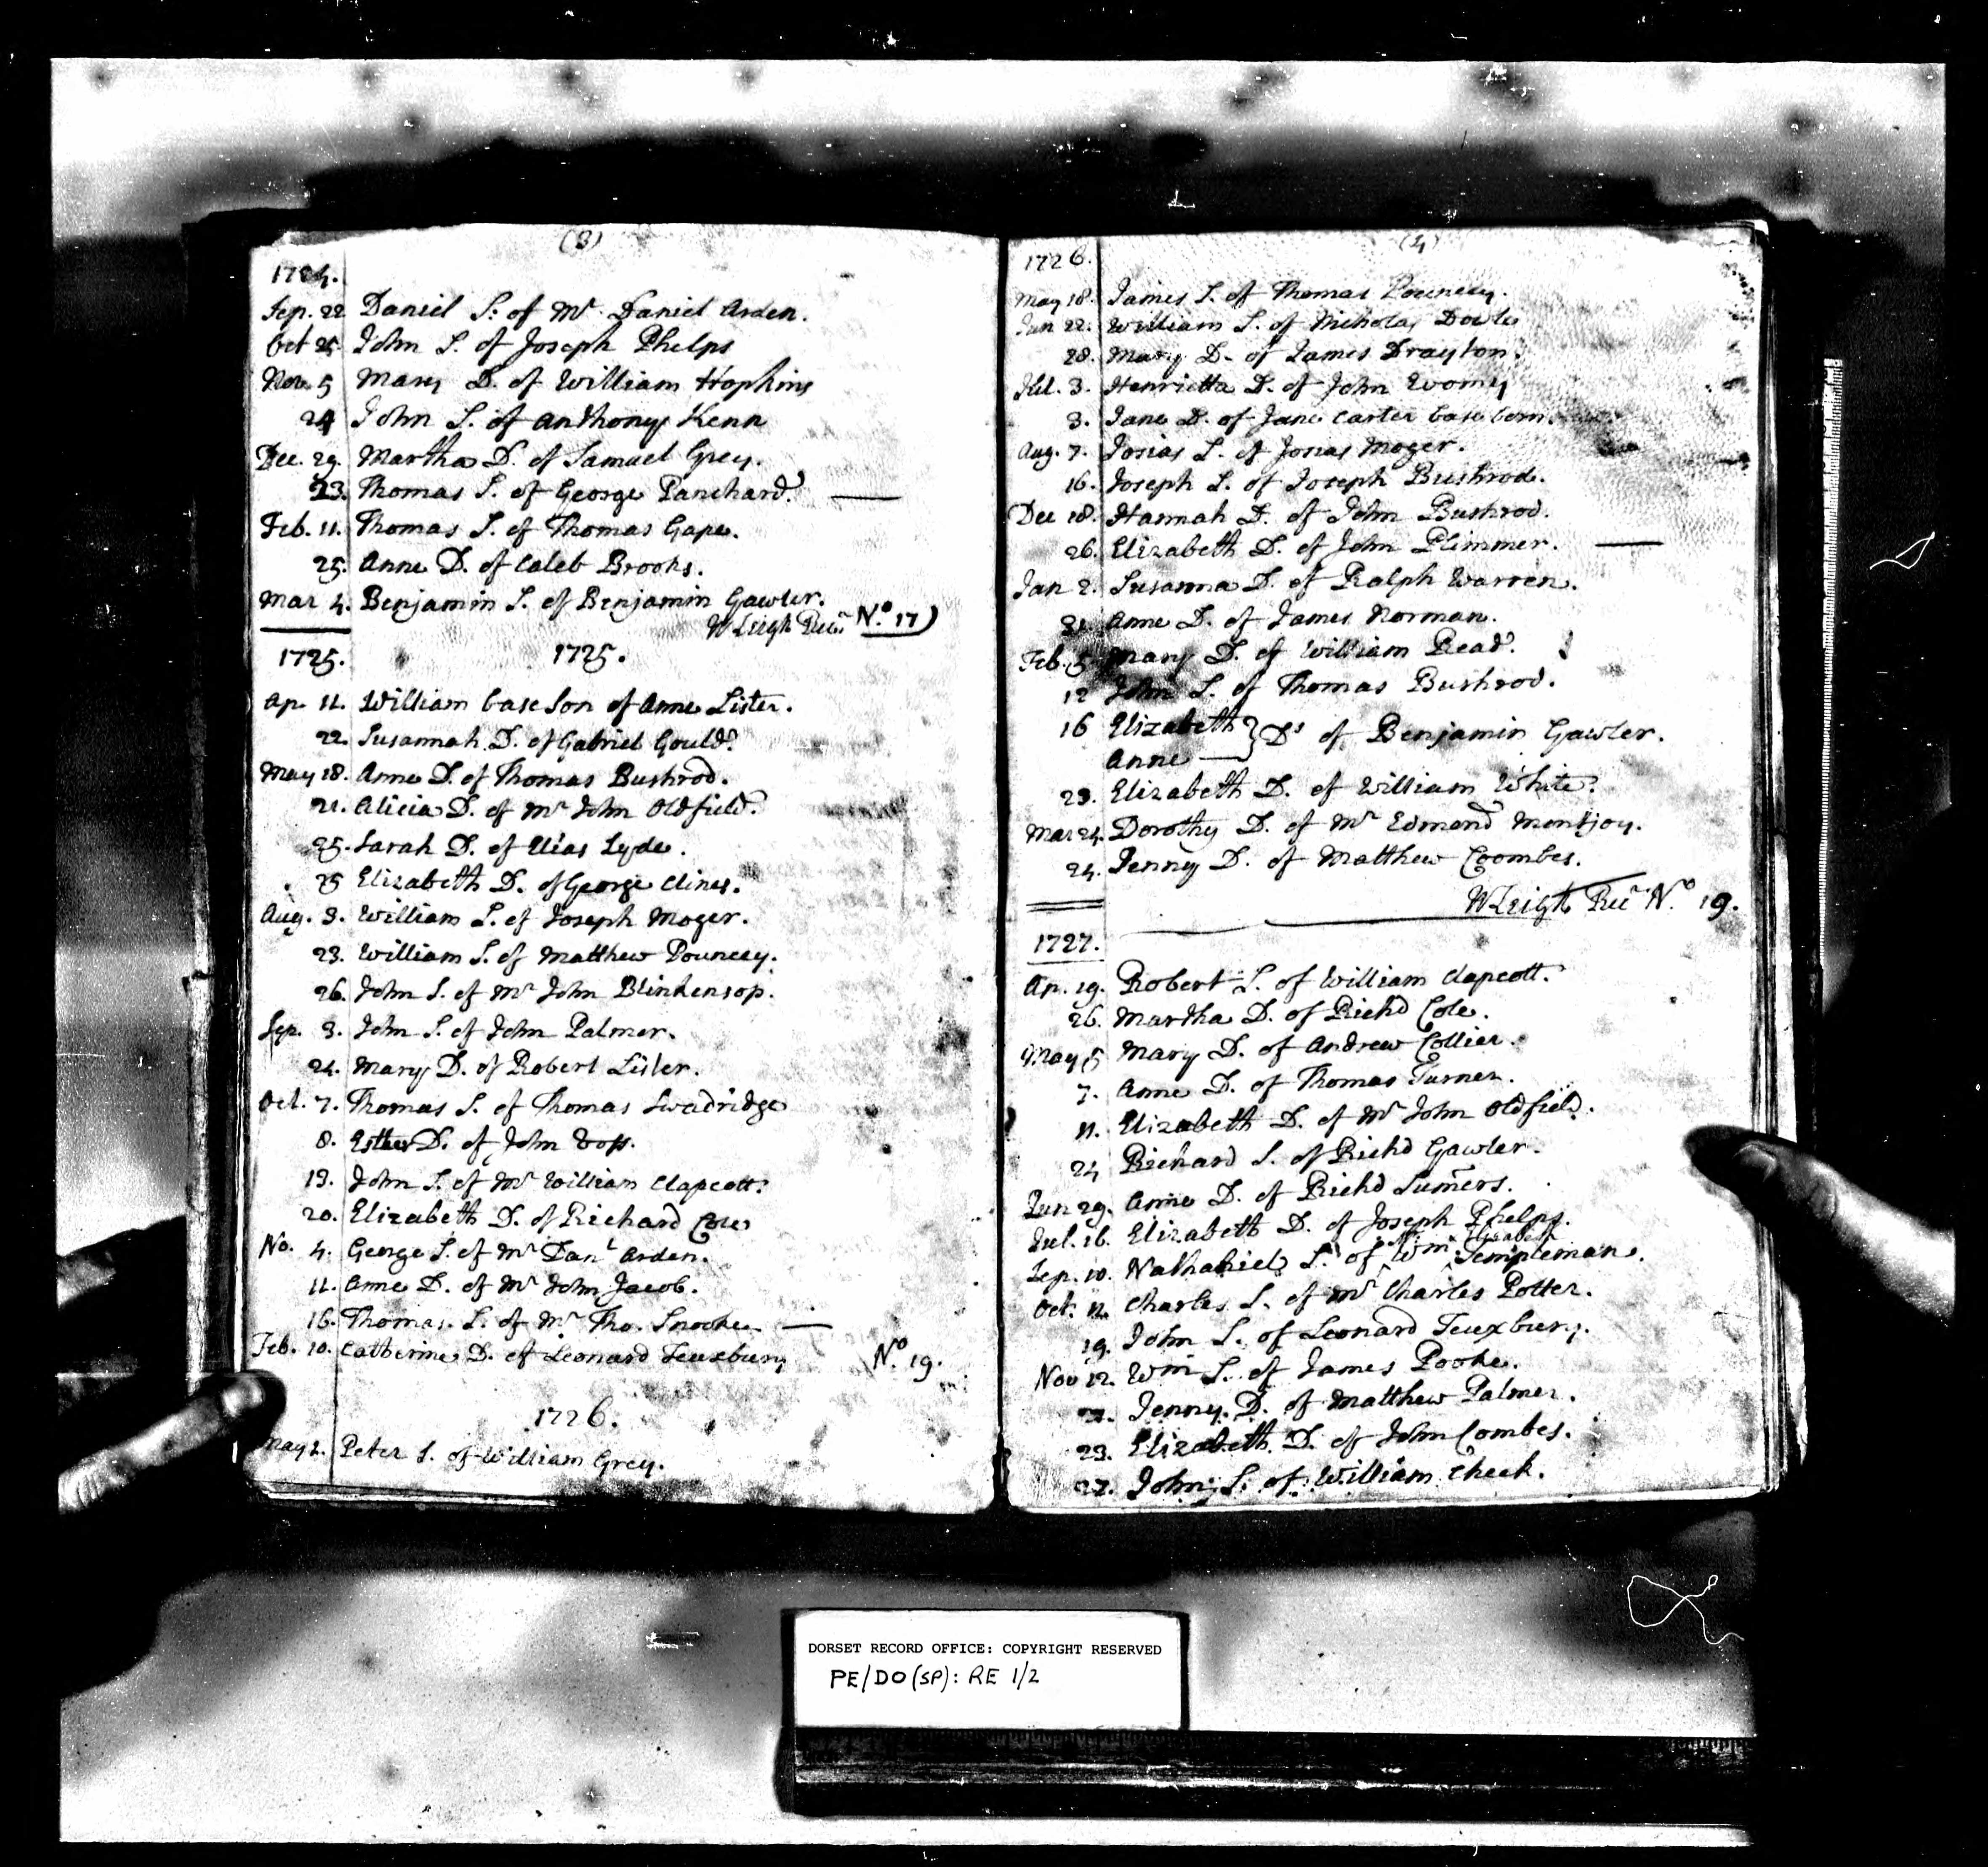 (3)
1724.
Sep. 22 Daniel S: of Mr Daniel Arden.
Oct 25 John S. of Joseph Phelps
Nov. 5 Mary D. of William Hopkins
24 John S. of Anthony Kenn
Dec. 29. Martha D. of Samuel Grey.
23. Thomas S. of George Panchard.
Feb. 11. Thomas S. of Thomas Gape.
25. Anne D. of Caleb Brooks.
Mar 4. Benjamin S. of Benjamin Gawler.
WLeigh Recr No. 17)
1725. 1725.
Ap. 11. William base Son of Anne Lister.
22. Susannah D. of Gabriel Gould.
May 18. Anne D. of Thomas Bushrod.
21. Alicia D. of Mr John Oldfield.
25. Sarah D. of Elias Lyde.
25 Elizabeth D. of George Clines.
Aug. 3. William S. of Joseph Moger.
23. William S. of Matthew Pouncey.
26. John S. of Mr John Blinkensop.
Sep. 3. John S. of John Palmer.
24. Mary D. of Robert Lister.
Oct. 7. Thomas S. of Thomas Swadridge
8. Esther D. of John Voss.
13. John S. of Mr William Clapcott.
20. Elizabeth D. of Richard Cole
No. 4. George S. of Mr Danl Arden.
11. Anne D. of Mr John Jacob.
16. Thomas. S. of Mr Tho. Snooke
Feb. 10. Catherine D. of Leonard Teuxbury No. 19.
1726.
May 2. Peter S. of William Grey.
(4)
1726.
May 18. James S. of Thomas Pouncey.
Jun 22. William S. of Nicholas
28. Mary D. of James Drayton.
Jul. 3. Henrietta D. of John
3. Jane D. of Jane Carter base born.
Aug. 7. Josias S. of Josias Moger.
16. Joseph S. of Joseph Bushrod.
Dec 18. Hannah D. of John Bushrod.
26. Elizabeth D. of John Plimmer.
Jan 2. Susanna D. of Ralph Warren.
21. Anne D. of James Norman.
Feb. 5 Mary D. of William Read.
12 John S. of Thomas Bushrod.
16 Elizabeth } Ds of Benjamin Gawler.
Anne
23. Elizabeth D. of William White.
Mar 24. Dorothy D. of Mr Edmond Montjoy.
24. Jenny D. of Matthew Coombes.
WLeigh Recr No. 19.
1727.
Ap. 19. Robert S. of William Clapcott.
26. Martha D. of Richd Cole.
May 5 Mary D. of Andrew Collier.
7. Anne D. of Thomas Turner.
11. Elizabeth D. of Mr John Oldfield.
24 Richard S. of Richd Gawler.
Jun 29. Anne D. of Richd Sumers.
Jul. 16. Elizabeth D. of Joseph Phelps.
Elizabeth
Sep. 10. Nathaniel S. of Wm Templeman.
Oct. 11. Charles S. of Mr Charles Potter.
19. John S. of Leonard Teuxbury.
Nov 12. Wm S. of James Pooke.
Jenny. D. of Matthew Palmer.
23. Elizabeth D. of John Combes.
27. John S. of William Cheek.
DORSET RECORD OFFICE: COPYRIGHT RESERVED
PE/DO(SP): RE 1/2